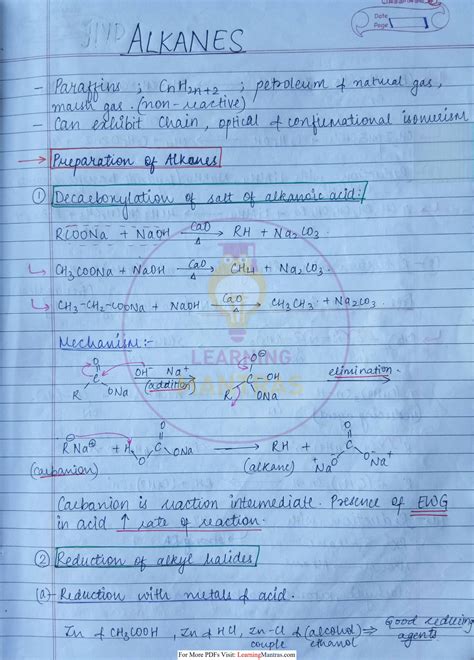 Date
Page
ALKANES
- Paraffins ; CnH2n+2 ; petroleum & natural gas,
marsh gas. (non-reactive)
- Can exhibit Chain, optical & conformational isomerism
→ Preparation of Alkanes
① Decarboxylation of salt of alkanoic acid:
RCOONa + NaOH CaO/Δ → RH + Na2CO3
↳ CH3COONa + NaOH CaO/Δ → CH4 + Na2CO3.
↳ CH3-CH2-COONa + NaOH CaO/Δ → CH3CH3 + Na2CO3.
LEARNING
MANTRAS
Mechanism:-
O O⊖
R C ONa OH⁻ Na⁺ (addition) → R C OH ONa elimination →
⊖ RNa⊕ + H O O ONa → RH + O
(carbanion) (alkane) Na⁺ ⁻O O⁻ Na⁺
Carbanion is reaction intermediate. Presence of EWG
in acid ↑ rate of reaction.
② Reduction of alkyl halides
(a) - Reduction with metals & acid.
Zn & CH3COOH, Zn & HCl, Zn-Cu & (alcohol) ⇒ Good reducing
couple ethanol agents
For More PDFs Visit: LearningMantras.com